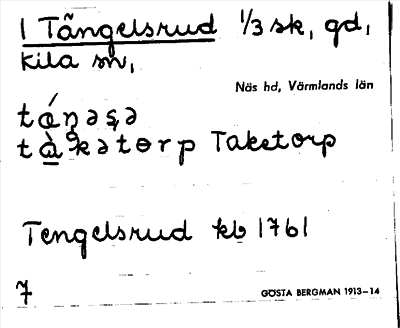 1 Tängelsrud 1/3 sk, gd,
Kila sn,
Näs hd, Värmlands län
Taketorp
Tengelsrud kb 1761
7
GÖSTA BERGMAN 1913–14